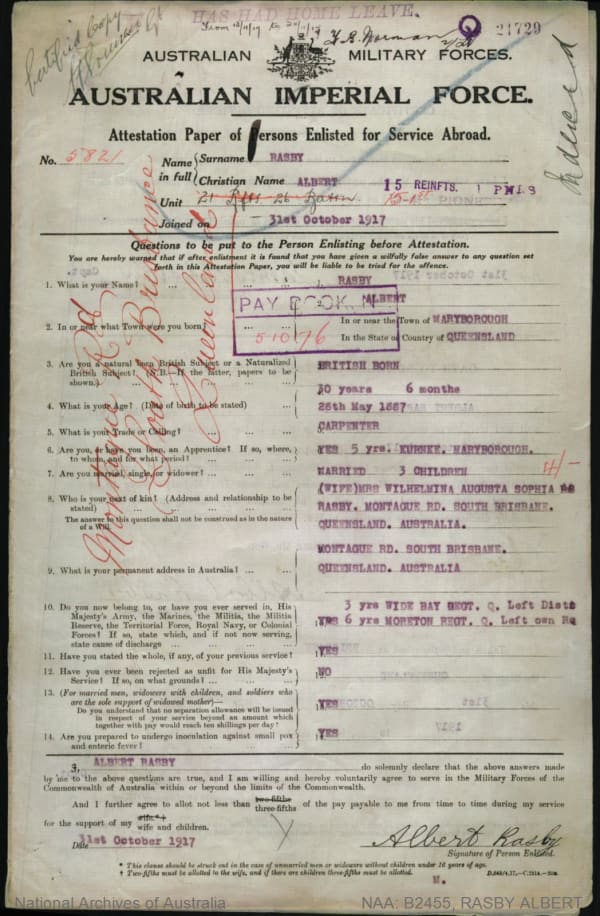 HAS HAD HOME LEAVE.
From 12/11/17 to 20/11/17
Certified Copy
21729
AUSTRALIAN MILITARY FORCES.
AUSTRALIAN IMPERIAL FORCE.
Attestation Paper of Persons Enlisted for Service Abroad.
No. 5821
Name in full
Surname RASBY
Christian Name ALBERT
15 REINFTS. 1 PNRS
Unit 21 Rfts 26 Battn.
Joined on 31st October 1917
Montague Rd
South Brisbane
Queensland
Questions to be put to the Person Enlisting before Attestation.
You are hereby warned that if after enlistment it is found that you have given a wilfully false answer to any question set
forth in this Attestation Paper, you will be liable to be tried for the offence.
1. What is your Name? ... RASBY
ALBERT
PAY BOOK N
51076
2. In or near what Town were you born? ... In or near the Town of MARYBOROUGH
In the State or Country of QUEENSLAND
3. Are you a natural born British Subject or a Naturalized
British Subject? (N.B.—If the latter, papers to be
shown.)
BRITISH BORN
30 years 6 months
4. What is your Age? (Date of birth to be stated) ... 26th May 1887
5. What is your Trade or Calling? CARPENTER
6. Are you, or have you been, an Apprentice? If so, where,
to whom, and for what period? ... YES 5 yrs. KURNKE. MARYBOROUGH.
7. Are you married, single, or widower? ... MARRIED 3 CHILDREN
8. Who is your next of kin? (Address and relationship to be
stated)
The answer to this question shall not be construed as in the nature
of a Will.
(WIFE)MRS WILHELMINA AUGUSTA SOPHIA
RASBY. MONTAGUE RD. SOUTH BRISBANE.
QUEENSLAND. AUSTRALIA.
9. What is your permanent address in Australia? ...
MONTAGUE RD. SOUTH BRISBANE.
QUEENSLAND. AUSTRALIA
10. Do you now belong to, or have you ever served in, His
Majesty's Army, the Marines, the Militia, the Militia
Reserve, the Territorial Force, Royal Navy, or Colonial
Forces? If so, state which, and if not now serving,
state cause of discharge ...
3 yrs WIDE BAY REGT. Q. Left Dist
YES 6 yrs MORETON REGT. Q. Left own Re
11. Have you stated the whole, if any, of your previous service? YES
12. Have you ever been rejected as unfit for His Majesty's
Service? If so, on what grounds? ... NO
13. (For married men, widowers with children, and soldiers who
are the sole support of widowed mother)—
Do you understand that no separation allowance will be issued
in respect of your service beyond an amount which
together with pay would reach ten shillings per day?
YES
14. Are you prepared to undergo inoculation against small pox
and enteric fever? ... YES
ALBERT RASBY do solemnly declare that the above answers made
by me to the above questions are true, and I am willing and hereby voluntarily agree to serve in the Military Forces of the
Commonwealth of Australia within or beyond the limits of the Commonwealth.
And I further agree to allot not less than two-fifths three-fifths of the pay payable to me from time to time during my service
for the support of my wife * † wife and children.
Date 31st October 1917
Albert Rasby
Signature of Person Enlisted.
* This clause should be struck out in the case of unmarried men or widowers without children under 16 years of age.
† Two-fifths must be allotted to the wife, and if there are children three-fifths must be allotted.
M.
National Archives of Australia
NAA: B2455, RASBY ALBERT